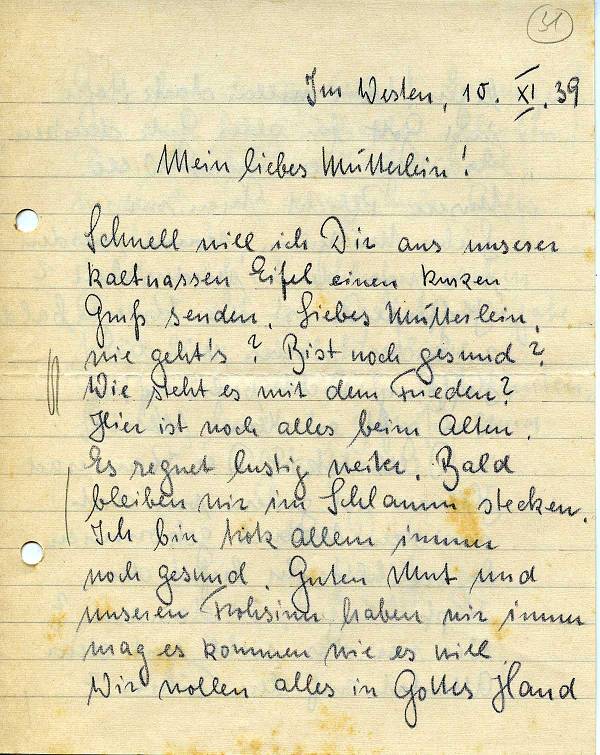 31
Im Westen, 10. XI. 39
Mein liebes Mütterlein!
Schnell will ich Dir aus unserer
kaltnassen Eifel einen kurzen
Gruß senden. Liebes Mütterlein,
wie geht's? Bist noch gesund?
Wie steht es mit dem Frieden?
Hier ist noch alles beim Alten.
Es regnet lustig weiter. Bald
bleiben wir im Schlamm stecken.
Ich bin trotz allem immer
noch gesund. Guten Mut und
unseren Frohsinn haben wir immer
mag es kommen wie es will.
Wir wollen alles in Gottes Hand